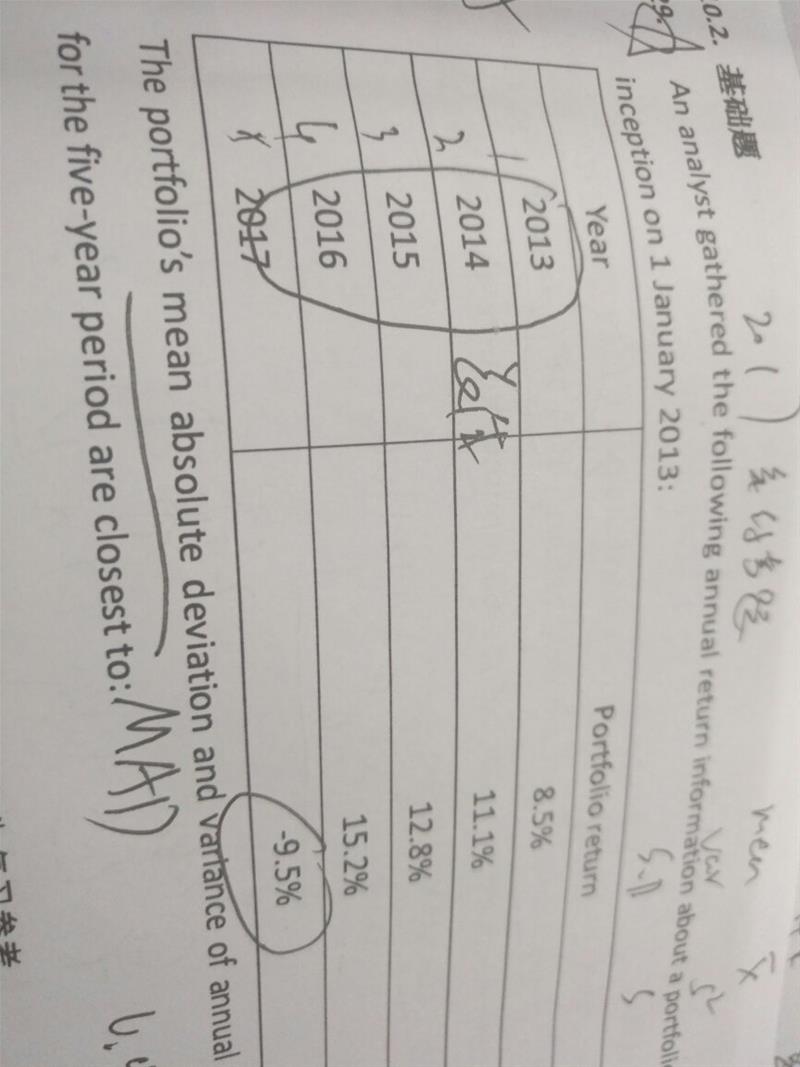 0.2. 基础题
29.
2. ( )
An analyst gathered the following annual return information about a portfolio
inception on 1 January 2013:
men x̄
Var S²
S
Year Portfolio return
1 2013 8.5%
2 2014 11.1%
3 2015 12.8%
4 2016 15.2%
2017 -9.5%
The portfolio's mean absolute deviation and variance of annual
for the five-year period are closest to: MAD